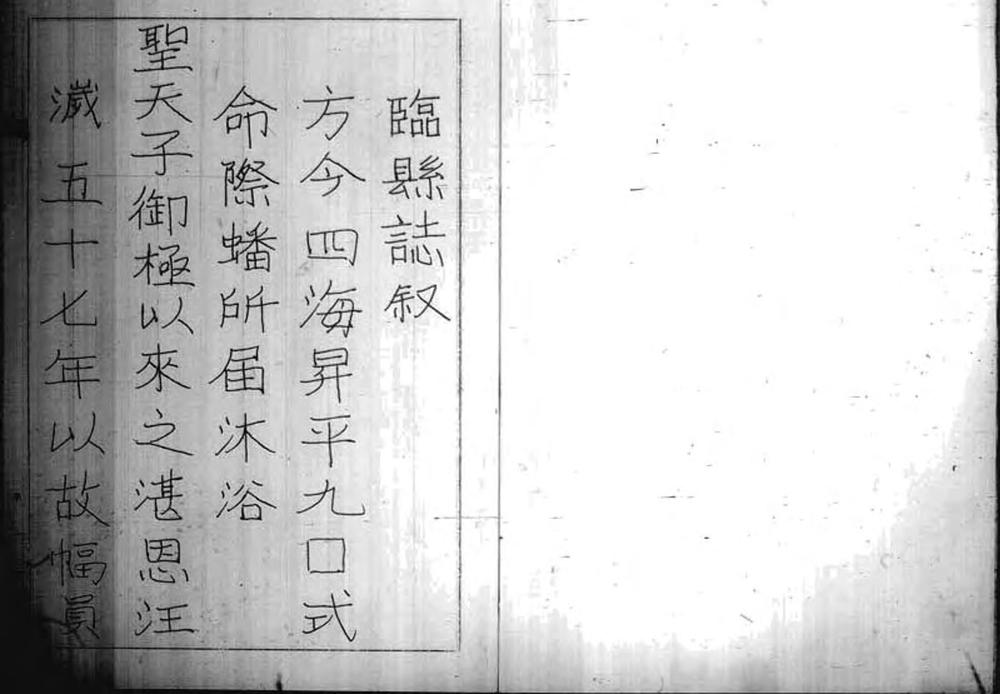 臨縣誌叙
方今四海昇平九□式
命際蟠所届沐浴
聖天子御極以來之湛恩汪
濊五十七年以故幅員